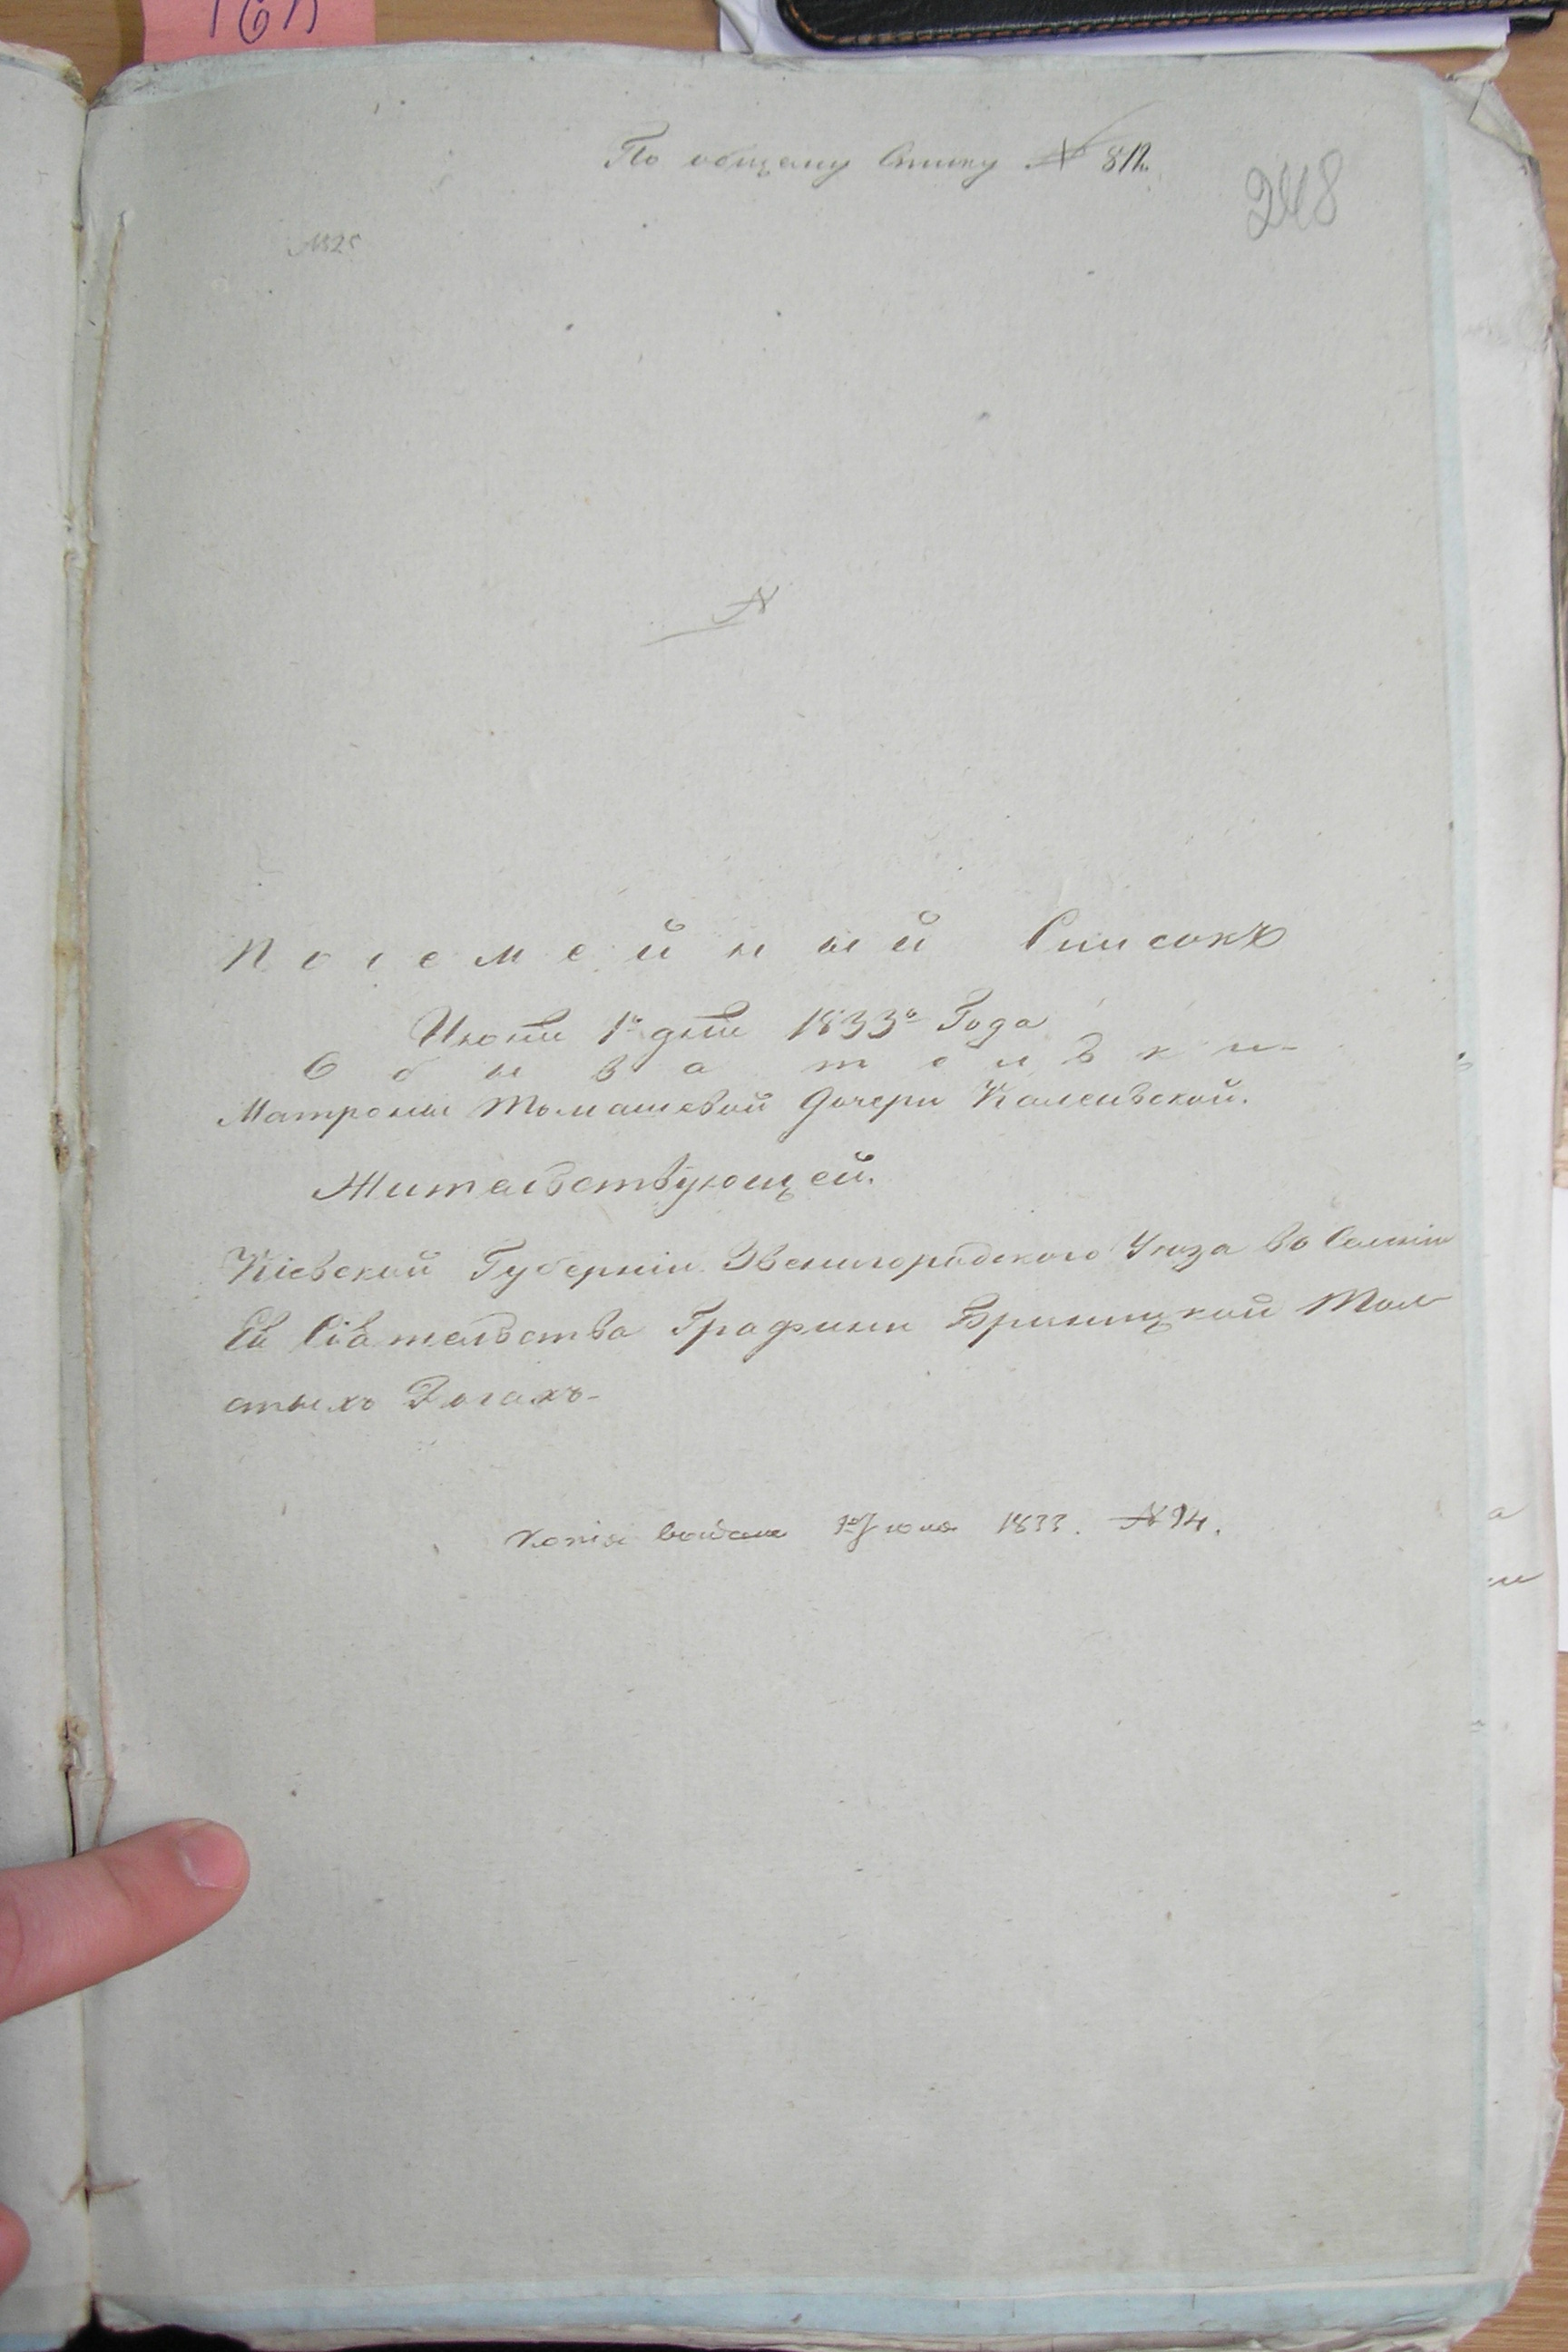 По общему списку № 812.
248
№25
№
Посемейный Списокъ
Июня 1го дня 1833го Года
Обывательки
Матроны Томашевой Дочери
Жительствующей.
Кіевской Губерніи Звенигородского Уезда во Селеніи
Ея Сіятельства Графини Браницкой Тол-
стыхъ Рогахъ-
Копія выдана Июня 1833. № 94.